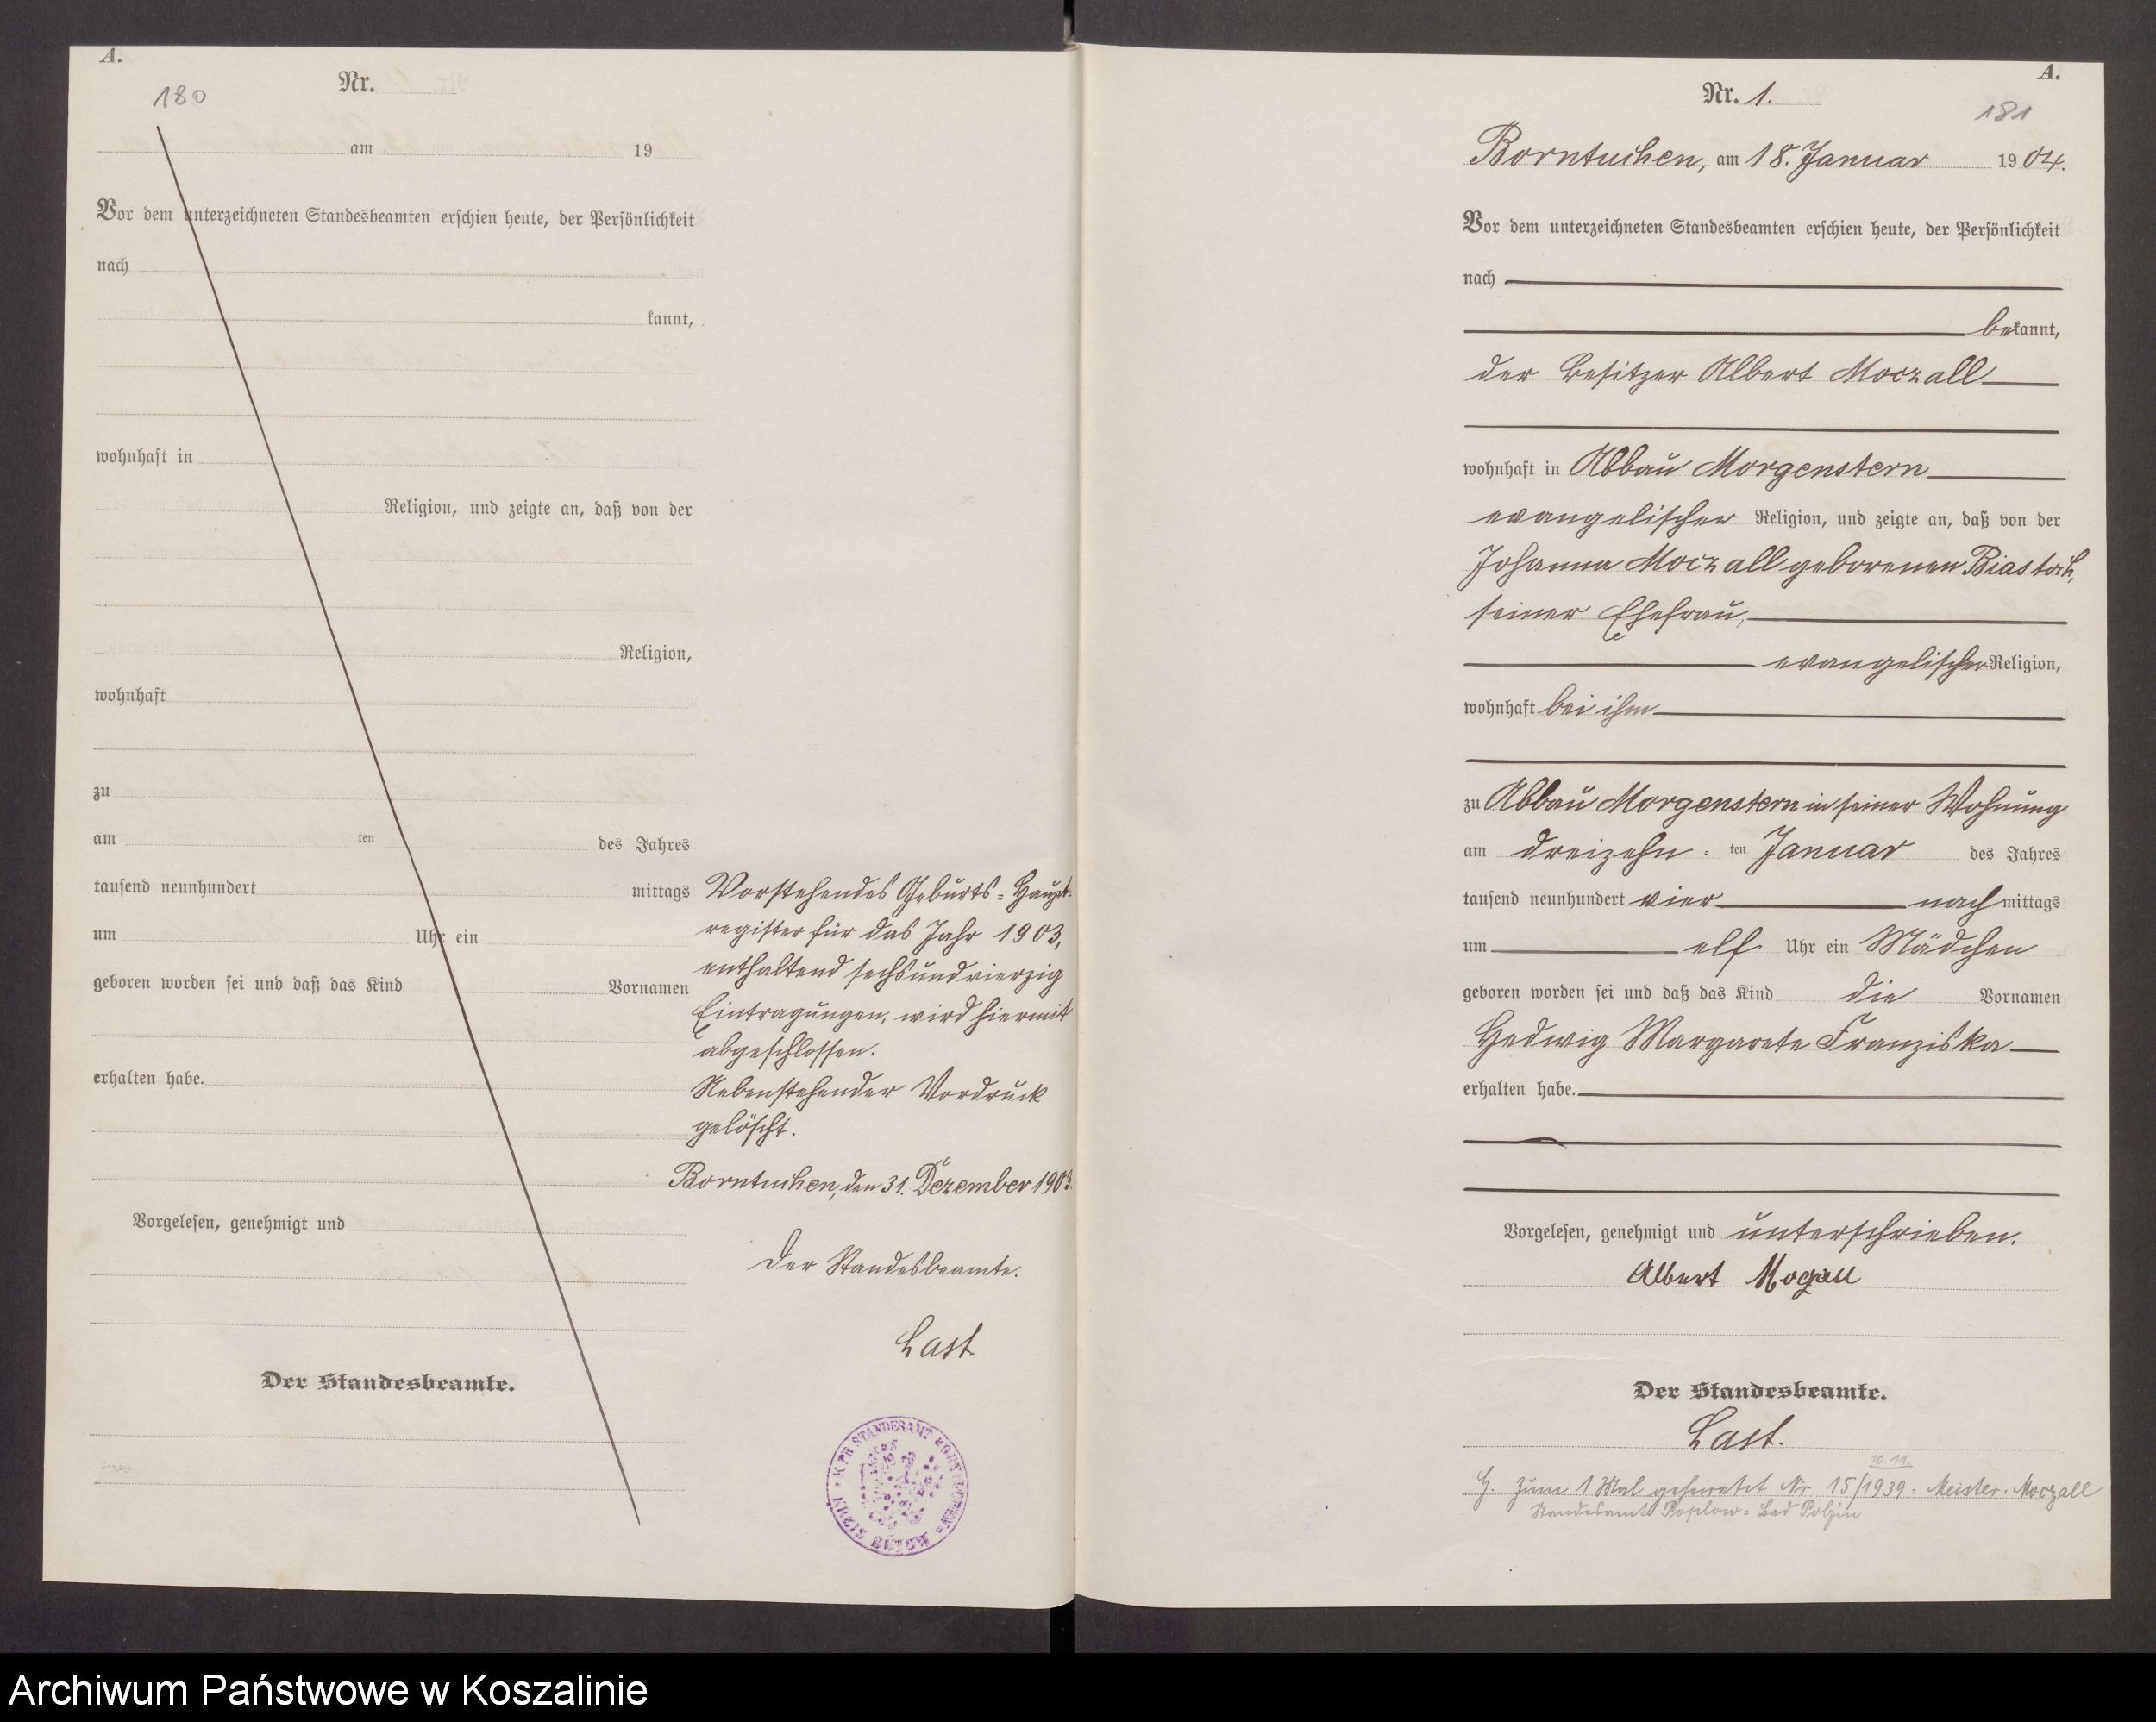 A.
Nr.
180
am 19
Vor dem unterzeichneten Standesbeamten erschien heute, der Persönlichkeit
nach
kannt,
wohnhaft in
Religion, und zeigte an, daß von der
Religion,
wohnhaft
zu
am ten des Jahres
tausend neunhundert mittags
um Uhr ein
geboren worden sei und daß das Kind Vornamen
erhalten habe.
Vorgelesen, genehmigt und
Der Standesbeamte.
Vorstehendes Geburts-Haupt-
register für das Jahr 1903,
enthaltend sechsundvierzig
Eintragungen, wird hiermit
abgeschlossen.
Nebenstehender Vordruck
gelöscht.
Borntuchen, den 31. Dezember 1903.
Der Standesbeamte.
Last
STANDESAMT BORNTUCHEN
A.
Nr. 1.
181
Borntuchen, am 18. Januar 1904.
Vor dem unterzeichneten Standesbeamten erschien heute, der Persönlichkeit
nach
bekannt,
der Besitzer Albert Moczall
wohnhaft in Abbau Morgenstern
evangelischer Religion, und zeigte an, daß von der
Johanna Moczall geborenen Biastoch,
seiner Ehefrau,
evangelischer Religion,
wohnhaft bei ihm
zu Abbau Morgenstern in seiner Wohnung
am dreizehn-ten Januar des Jahres
tausend neunhundert vier nachmittags
um elf Uhr ein Mädchen
geboren worden sei und daß das Kind die Vornamen
Hedwig Margarete Franziska
erhalten habe.
Vorgelesen, genehmigt und unterschrieben.
Albert Mozall
Der Standesbeamte.
Last.
10.11.
H. Zum 1 Mal geheiratet Nr 15/1939 = Meister-Moczall
Standesamt Poplow = Bad Polzin
Archiwum Państwowe w Koszalinie